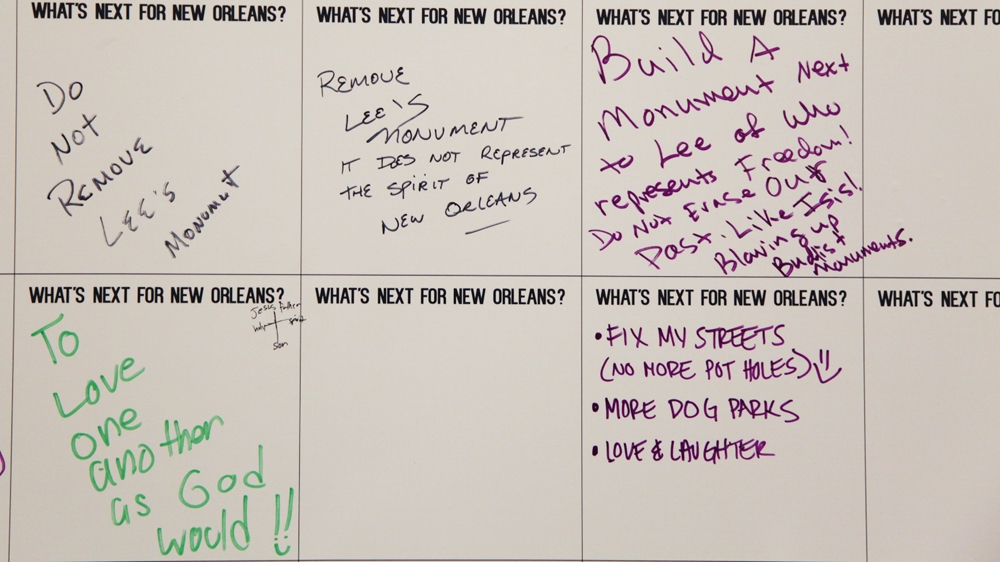 WHAT'S NEXT FOR NEW ORLEANS?
DO
NOT
REMOVE
LEE'S
MONUMENT
WHAT'S NEXT FOR NEW ORLEANS?
REMOVE
LEE'S
MONUMENT
IT DOES NOT REPRESENT
THE SPIRIT OF
NEW ORLEANS
WHAT'S NEXT FOR NEW ORLEANS?
Build A
Monument Next
to Lee of who
represents Freedom!
Do Not Erase Our
Past. Like Isis!
Blowing up
Budist
Monuments.
WHAT'S NEXT FO
WHAT'S NEXT FOR NEW ORLEANS?
Jesus Father
holy spirit
Son
To
Love
one
another
as God
would!!
WHAT'S NEXT FOR NEW ORLEANS?
WHAT'S NEXT FOR NEW ORLEANS?
• FIX MY STREETS
(NO MORE POT HOLES)
• MORE DOG PARKS
• LOVE & LAUGHTER
WHAT'S NEXT FO